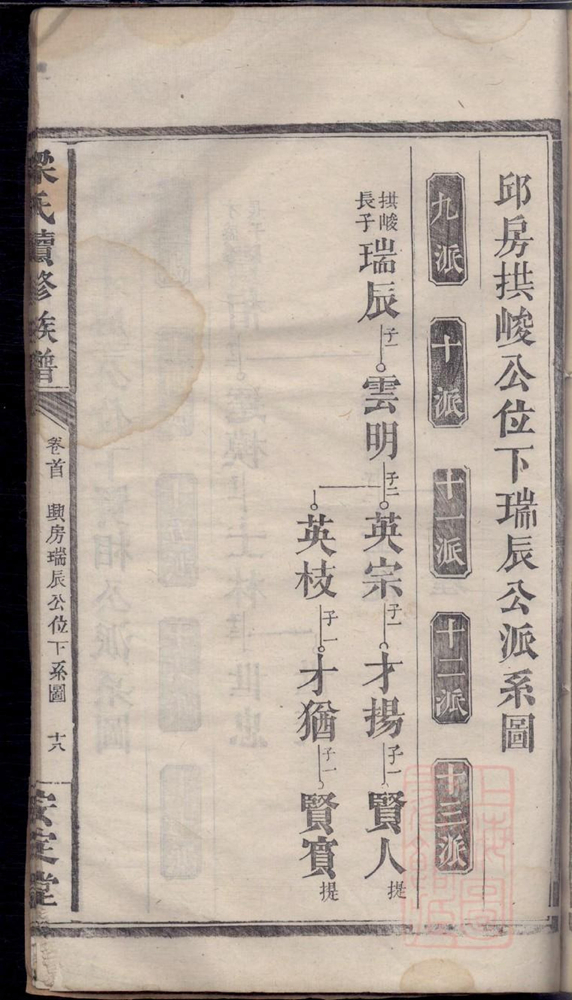 邱房拱峻公位下瑞辰公派系圖
九派 十派 十一派 十二派 十三派
拱峻長子 瑞辰 子一 雲明 子二 英宗 子一 才揚 子一 賢人 提
英枝 子一 才猶 子一 賢賓 提
梁氏續修族譜 卷首 興房瑞辰公位下系圖 十八 安定堂